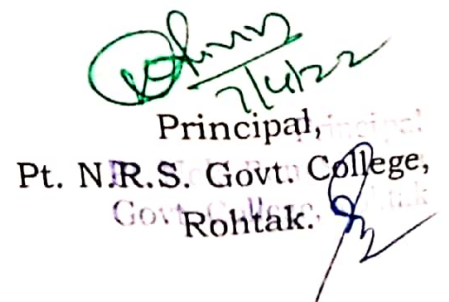 7/4/22
Principal,
Pt. N.R.S. Govt. College,
Rohtak.